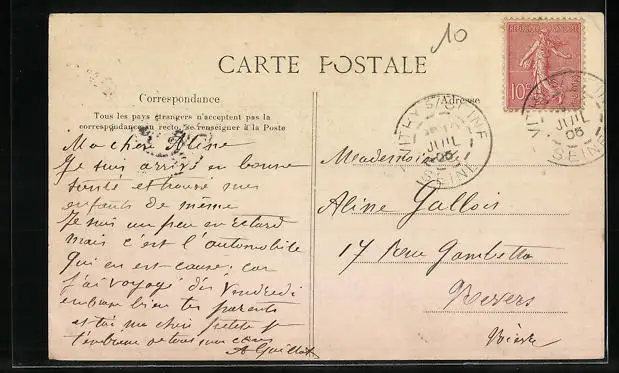 10
CARTE POSTALE
REPUBLIQUE FRANÇAISE
10c
Correspondance
Adresse
Tous les pays étrangers n'acceptent pas la
correspondance au recto, se renseigner à la Poste
VITRY S/ SEINE
JUIL
05
SEINE
JUIL
05
SEINE
Ma chère Aline
Je suis arrivé en bonne
santé et trouve mes
enfants de même
Je suis un peu en retard
mais c'est l'automobile
qui en est cause, car
j'ai voyagé dès Vendredi
embrasse bien tes parents
et toi ma chère petite
t'embrasse de tout mon cœur
A Guillot
Mademoiselle
Aline Gallois
17 Rue Gambetta
Nevers
Nièvre